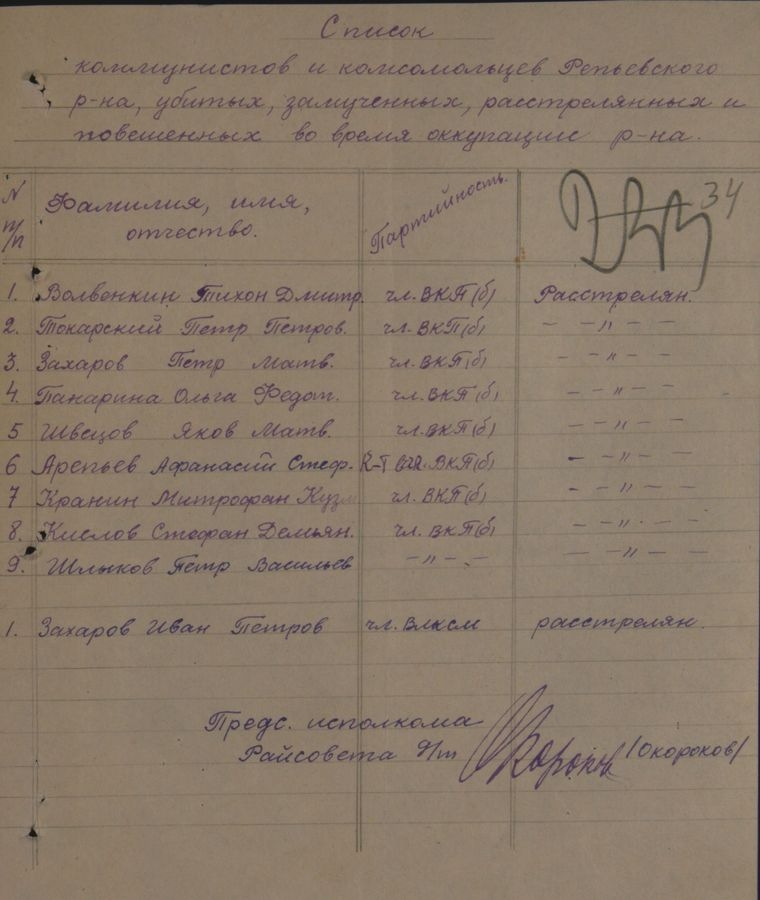 Список
коммунистов и комсомольцев Репьевского
р-на, убитых, замученных, расстрелянных и
повешенных во время оккупации р-на.
N п/п Фамилия, имя, отчество. Партийность. 34
1. Волвенкин Тихон Дмитр. чл. ВКП(б) Расстрелян.
2. Токарский Петр Петров. чл. ВКП(б) — „ — —
3. Захаров Петр Матв. чл. ВКП(б) — — „ — —
4. Панарина Ольга Федот. чл. ВКП(б) — — „ — —
5 Швецов Яков Матв. чл. ВКП(б) — — „ — —
6 Арепьев Афанасий Стеф. К-т ВКП(б) — — „ — —
7 Кранин Митрофан Кузм чл. ВКП(б) — — „ — —
8. Кислов Стефан Демьян. чл. ВКП(б) — — „ — —
9. Шлыков Петр Васильев — „ — — — — „ — —
1. Захаров Иван Петров чл. ВЛКСМ расстрелян.
Предс. исполкома
Райсовета Окороков /Окороков/